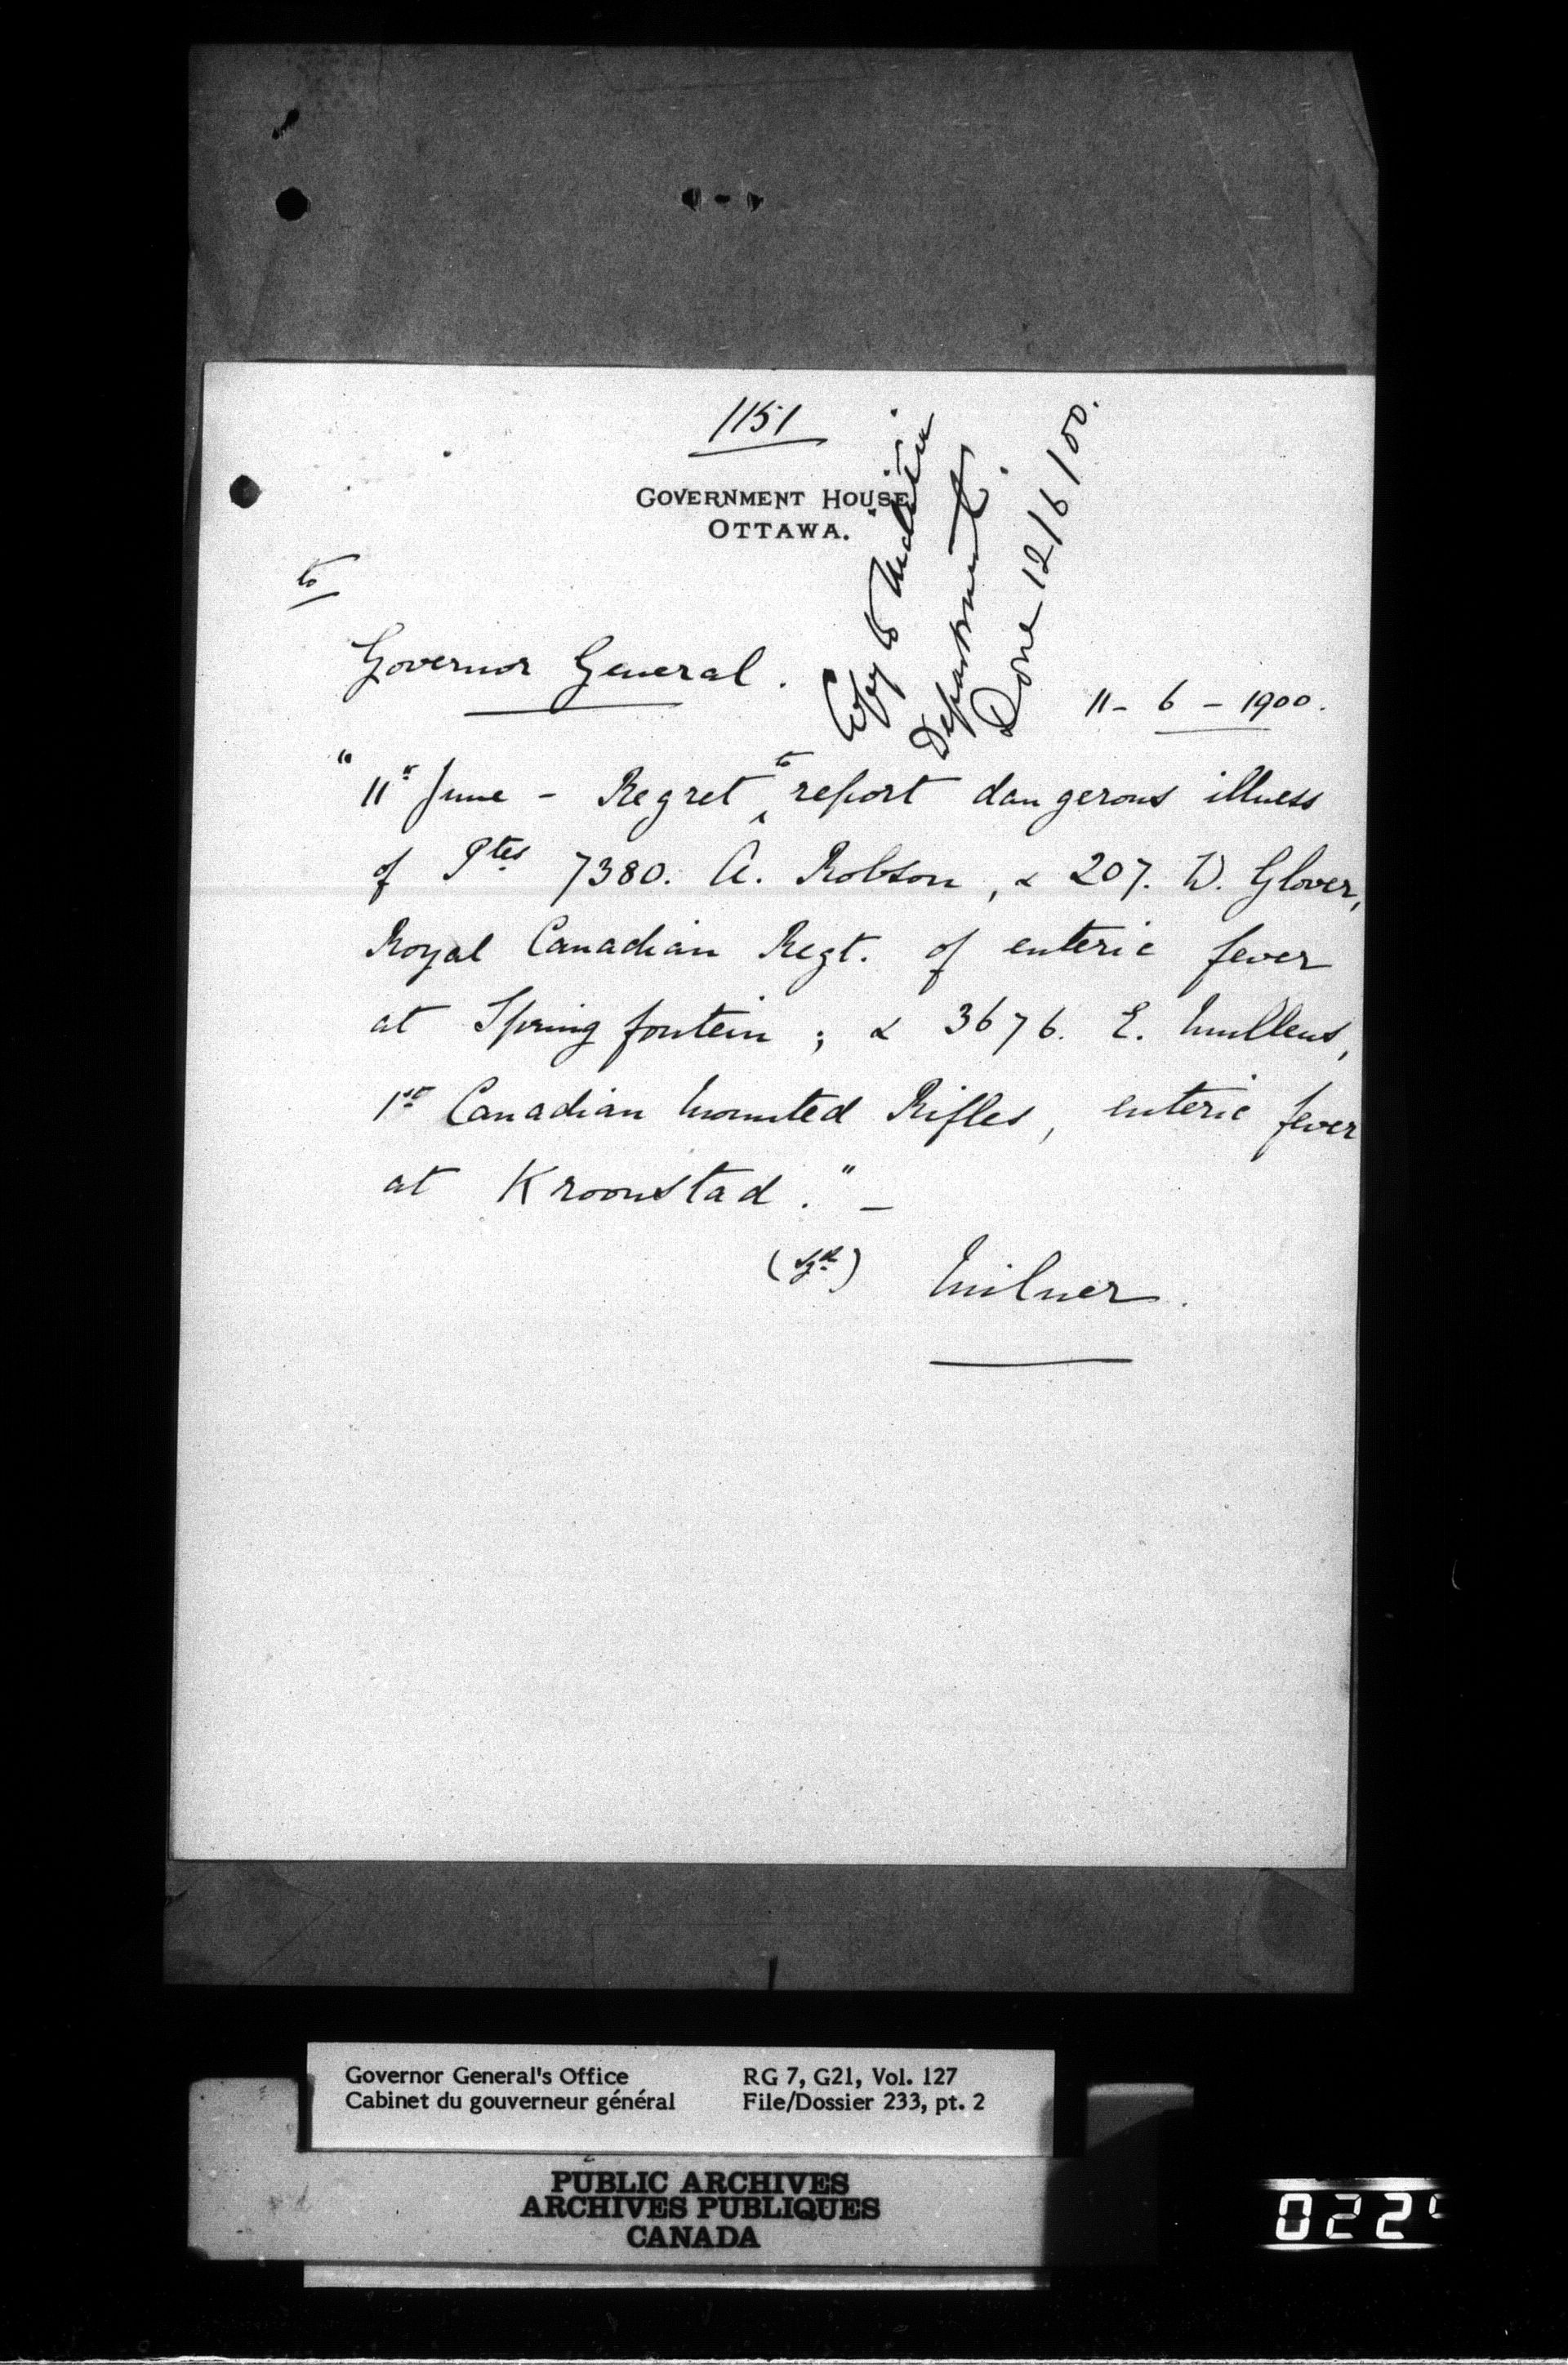 1151
GOVERNMENT HOUSE
OTTAWA.
Copy to Militia
Department.
Done 12/6/00.
to
Governor General.
11 - 6 - 1900.
"11th June - Regret to report dangerous illness
of Ptes 7380. A. Robson, & 207. W. Glover,
Royal Canadian Regt. of enteric fever
at Springfontein; & 3676. E. Mullens,
1st Canadian Mounted Rifles, enteric fever
at Kroonstad." -
(sgd) Milner.
Governor General's Office RG 7, G21, Vol. 127
Cabinet du gouverneur général File/Dossier 233, pt. 2
PUBLIC ARCHIVES
ARCHIVES PUBLIQUES
CANADA
022